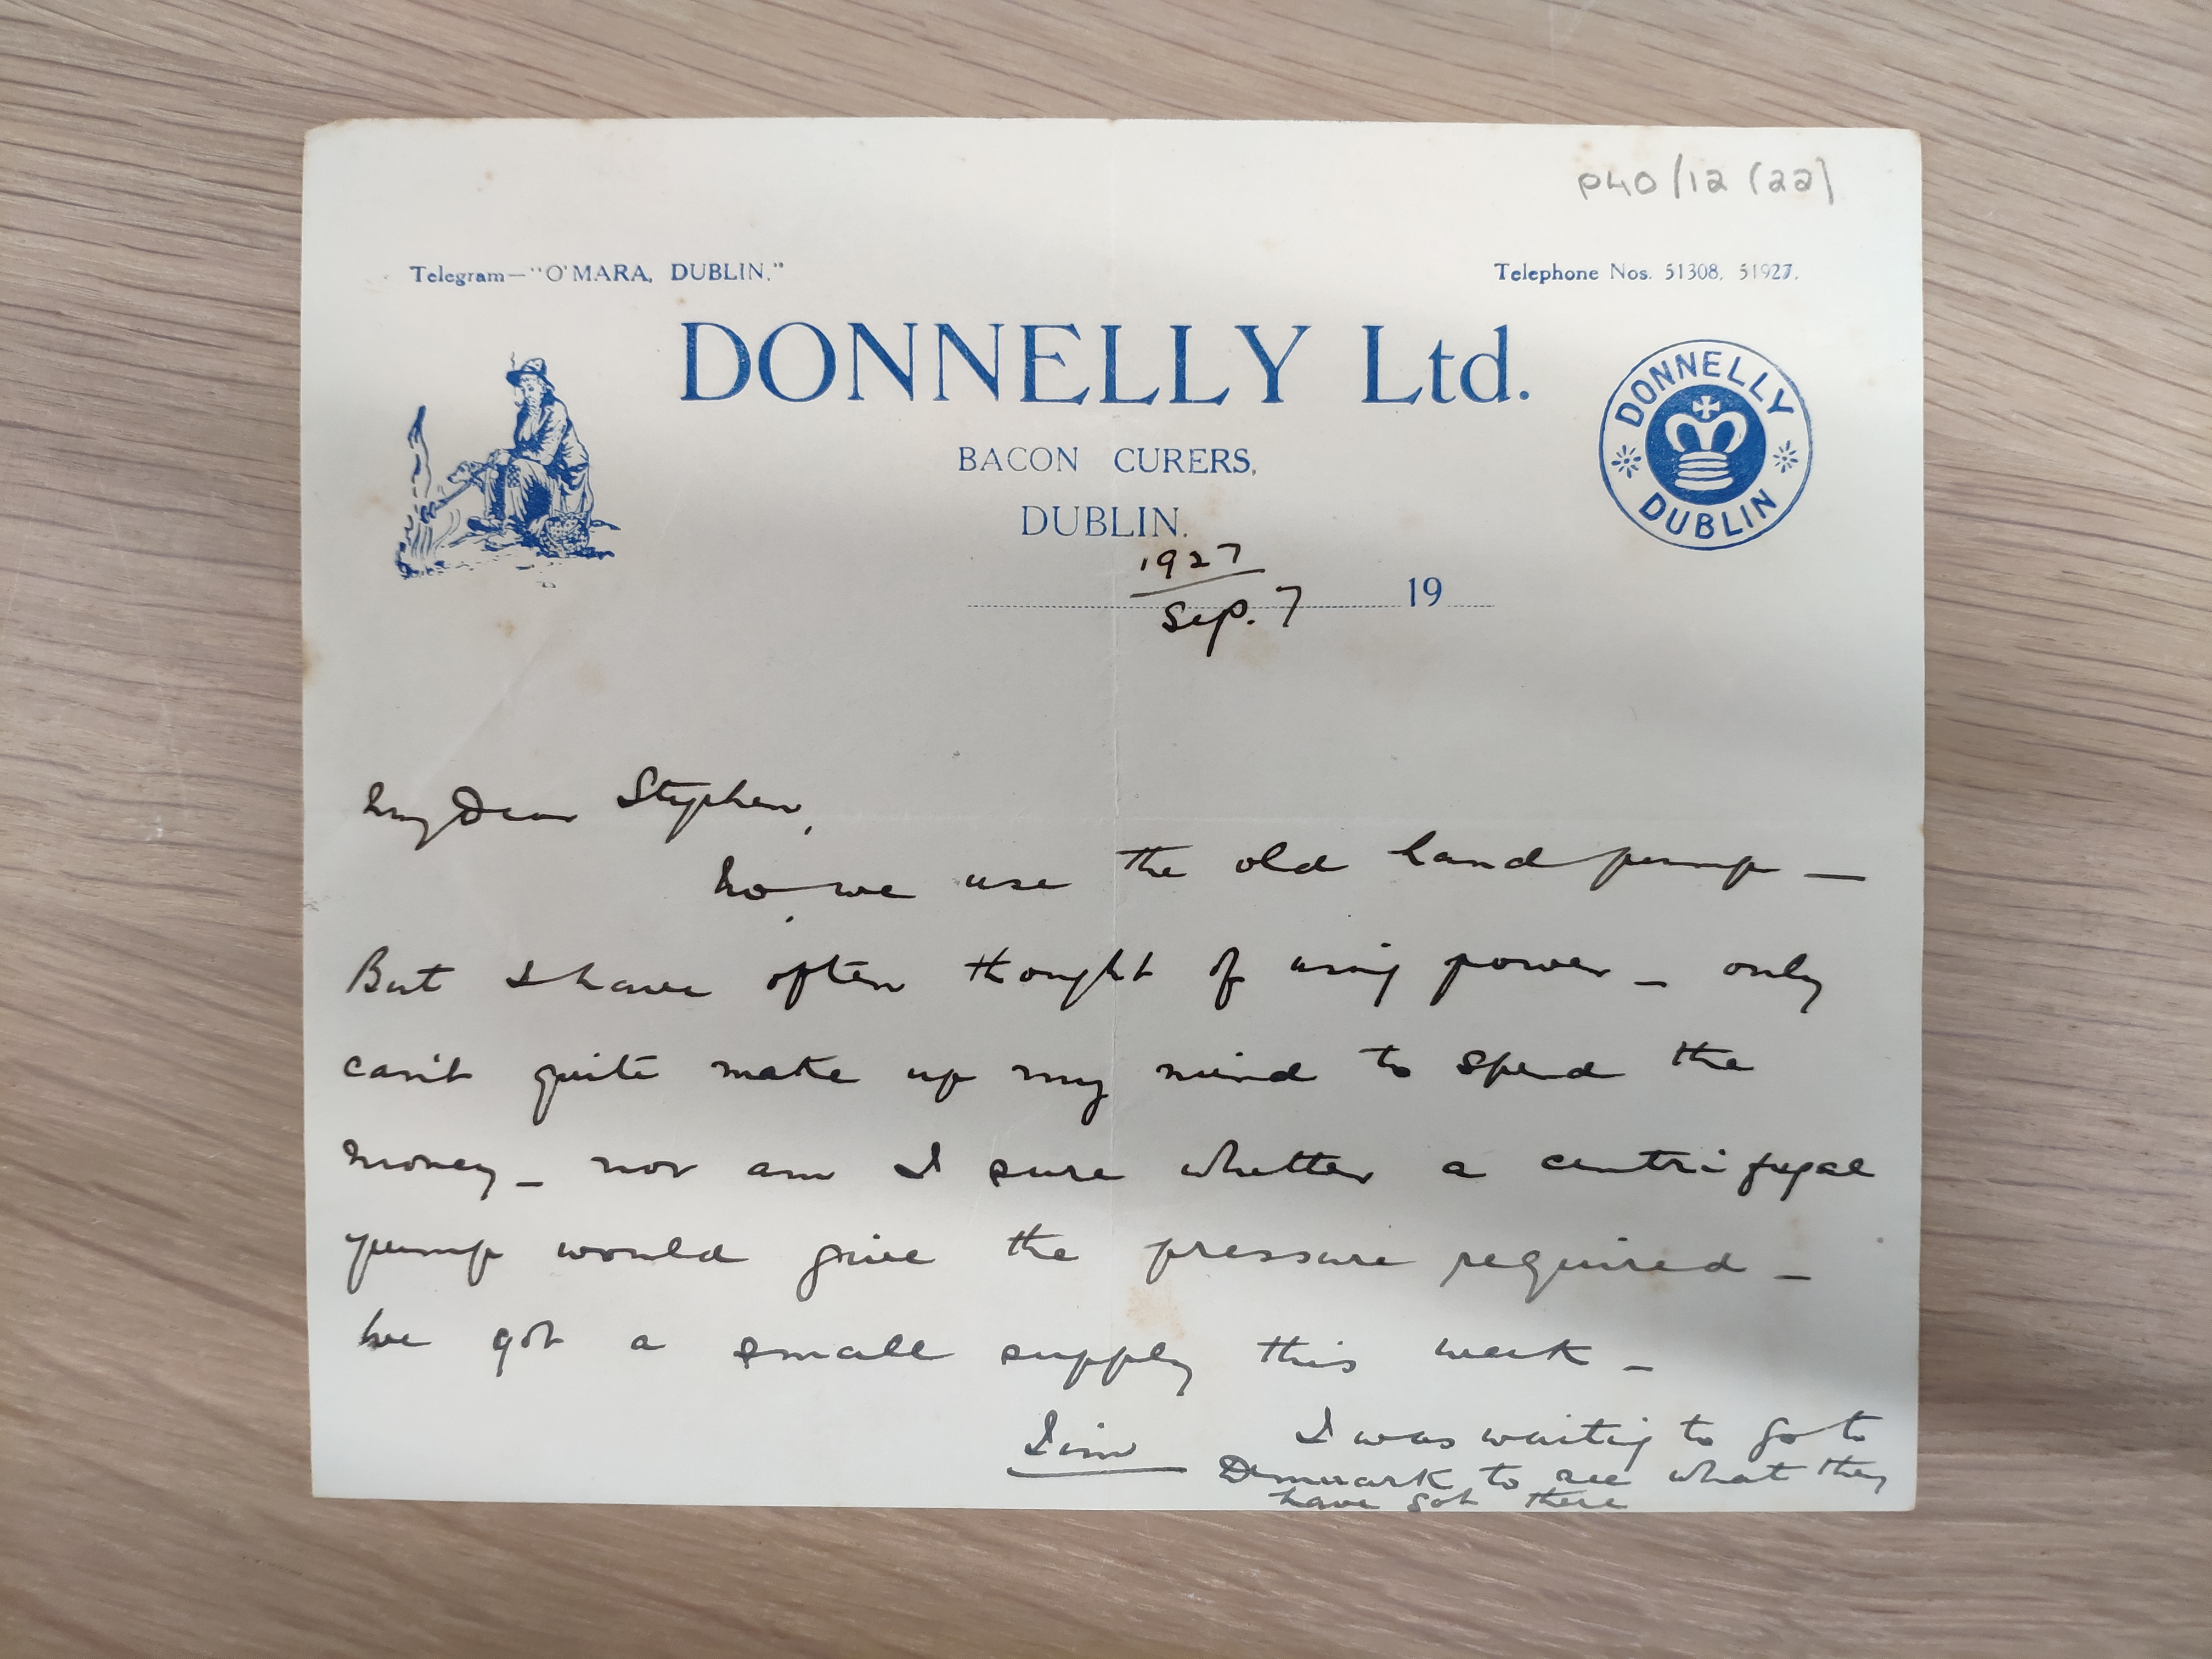 P40/12 (22)
Telegram—"O'MARA, DUBLIN."
Telephone Nos. 51308, 51927.
DONNELLY Ltd.
BACON CURERS,
DUBLIN.
DONNELLY
DUBLIN
1927
Sep. 7
19
My Dear Stephen,
No, we use the old hand pump —
But I have often thought of using power — only
can't quite make up my mind to spend the
money — nor am I sure whether a centrifugal
pump would give the pressure required —
We got a small supply this week —
Jim
I was waiting to go to
Denmark to see what they
have got there